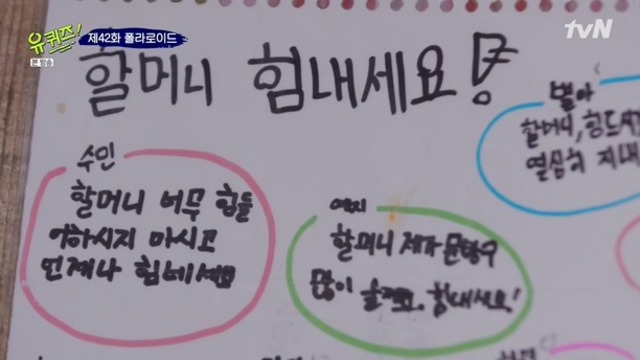 유퀴즈!
본 방송
제42화 폴라로이드
tvN
할머니 힘내세요!
수인
할머니 너무 힘들
어하시지 마시고
언제나 힘네세요
예지
할머니 제가 문방구
많이 힘내세요!
별아
할머니, 힘드시
열심히 지내